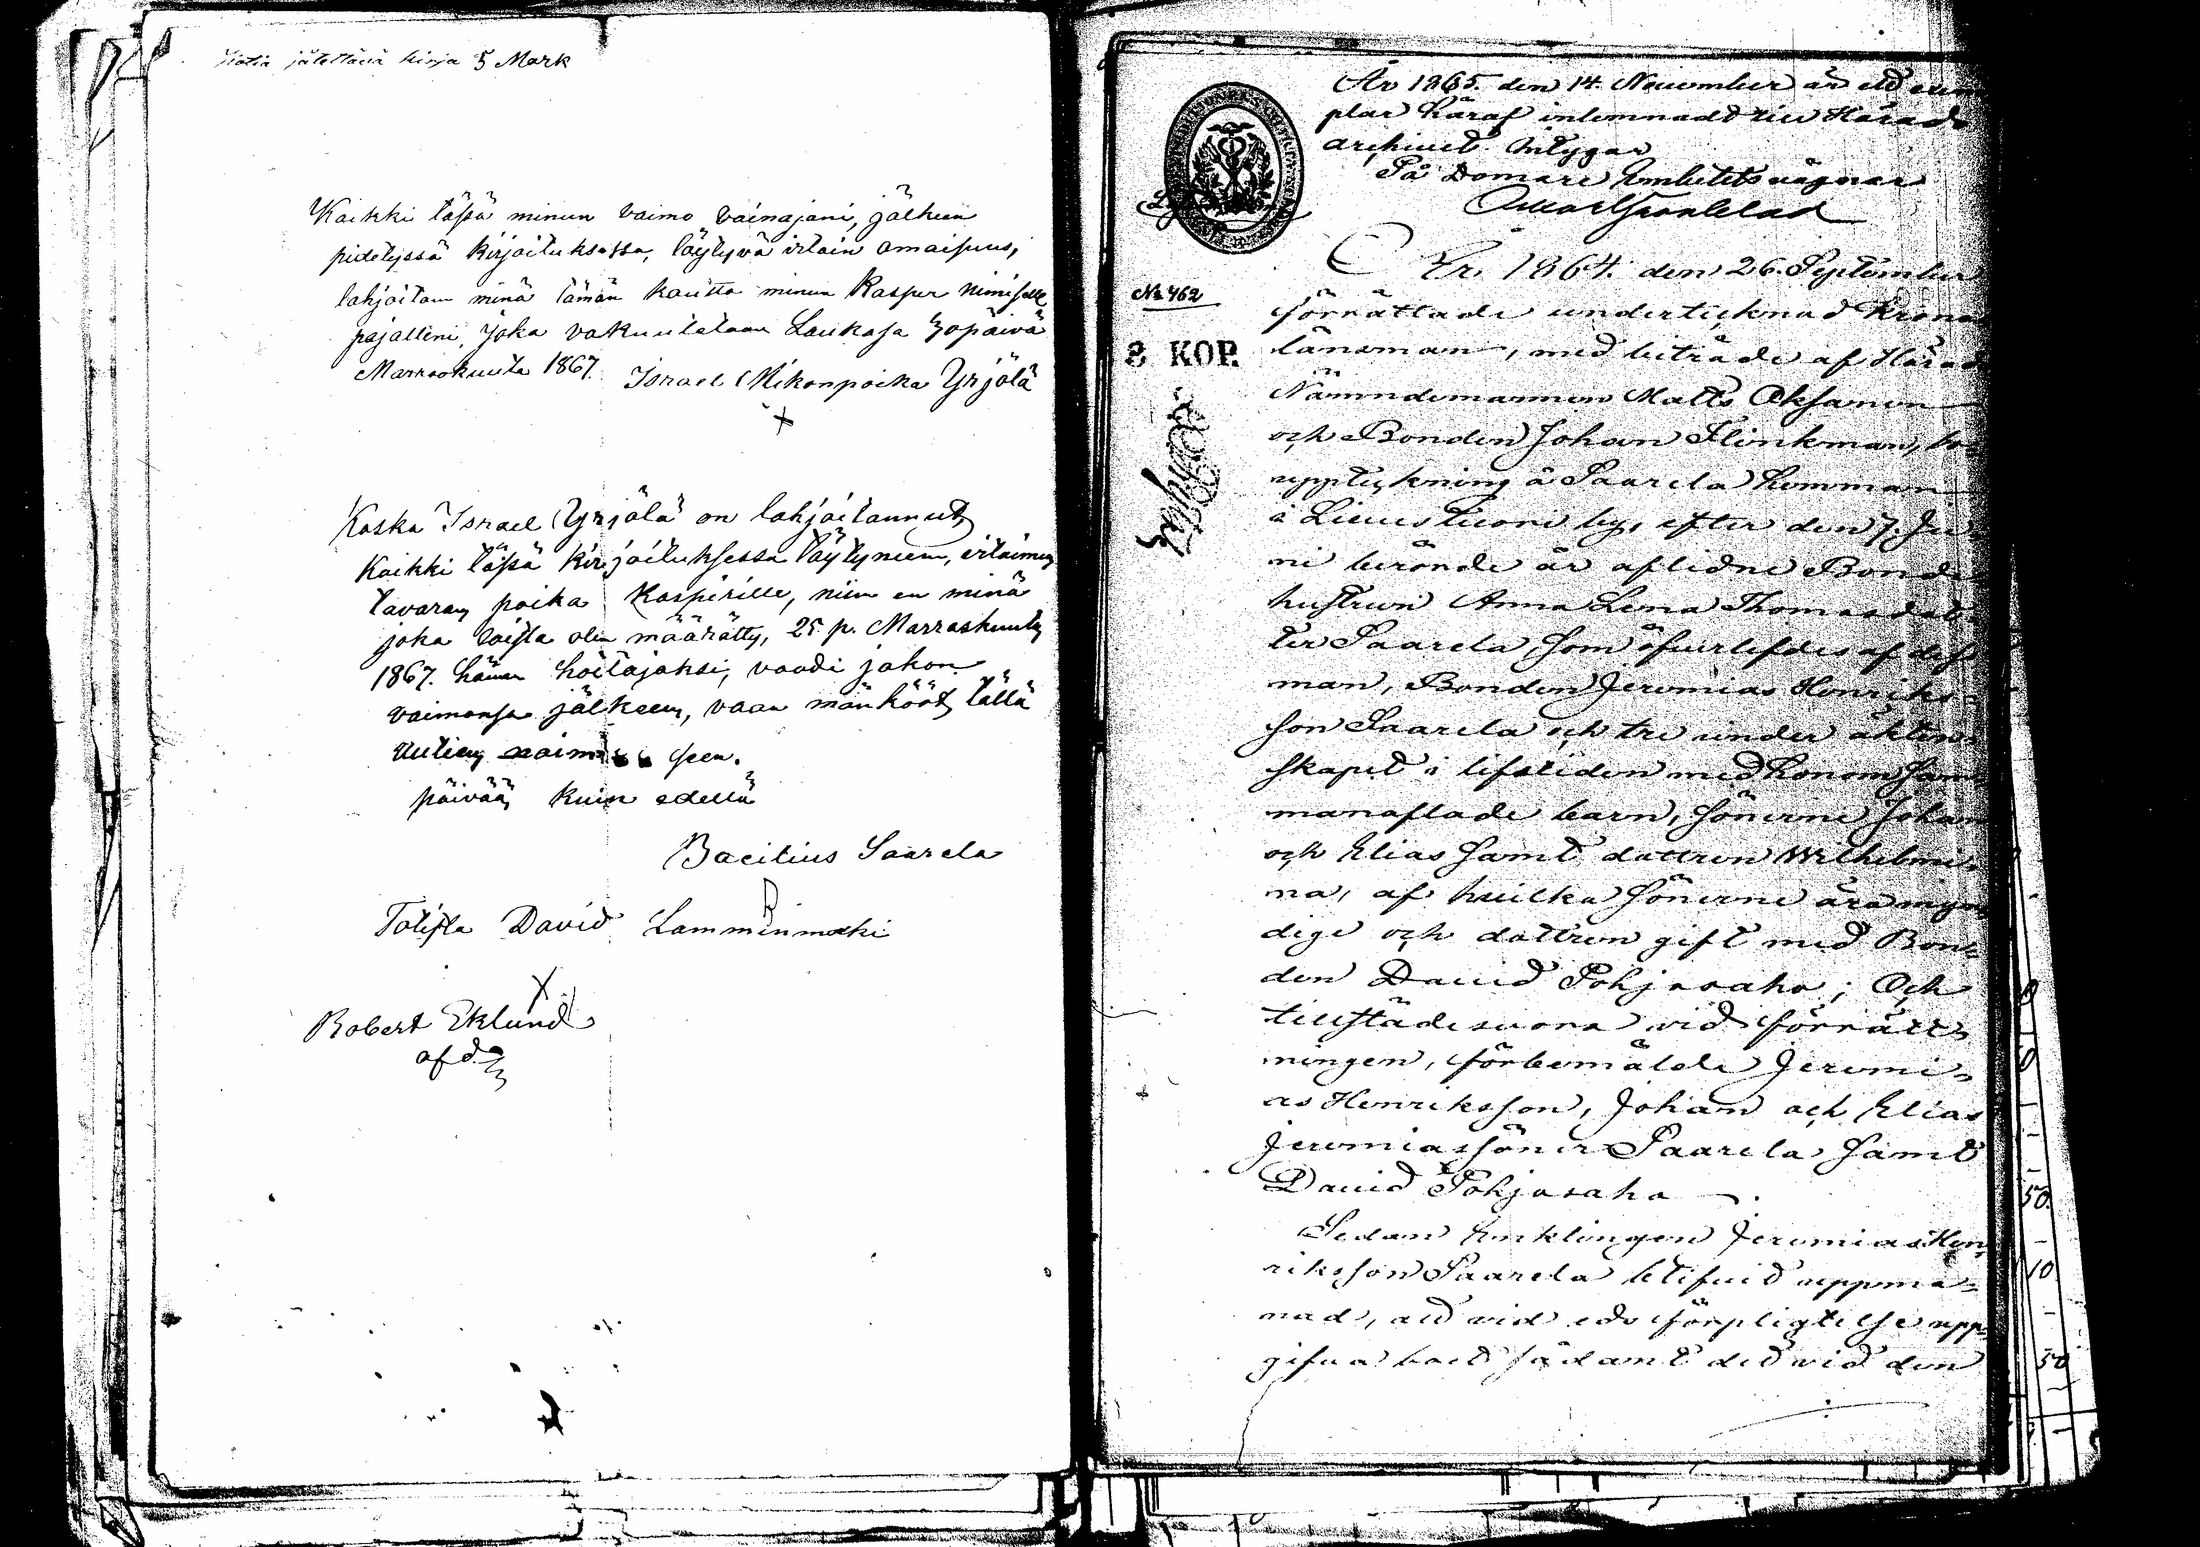 jätettävä kirja 5 Mark
Kaikki tässä minun vaimo vainajani, jälkeen
pidetyssä kirjoituksessa, löytyvä irtain omaisuus,
lahjoitan minä tämän kautta minun Kasper nimiselle
pojalleni, joka vakuutetaan Laukasa 30päivä
Marraskuuta 1867. Israel Mikonpoika Yrjölä
X
Koska Israel Yrjölä on lahjoitannut
Kaikki tässä kirjoituksessa löytyneen, irtaimen
tavaran poika Kasperille, niin en minä
joka oista olen määrätty, 25 p. Marraskuuta
1867. hänen hoitajaksi, vaadi jakon
vaimonsa jälkeen, vaan mänkööt tällä
Uuteen seen.
päivää kuin edellä
Bacilius Saarela
Totista David Lamminmäki
X
Robert Eklund
afd.
År 1865. den 14. November är ett exem
plar häraf inlemnadt till Härads
archivet. Intygar
På Domare Embetets vägnar
År 1864. den 26. September
No 462
förrättade undertecknad Krono
8 KOP.
länsman, med biträde af Härads
Nämndemannen Matts Oksanen
och Bonden Johan Flinkman, bo-
uppteckning å Saarela hemman
i Liuustuori by, efter den 7. Ju-
ni berörde år aflidne Bonde
hustrun Anna Lena Thomasdot-
ter Saarela, som öfverlefdes af dess
man, Bonden Jeremias Henriks-
son Saarela och tre under äkten-
skapet i lifstiden med honom sam
manaflade barn, Sönerne Johan
och Elias samt dottren Wilhelmi-
na, af hvilka Sönerne äro myn
dige och dottren gift med Bon-
den David Pohjasaho; Och
tillstädesvoro vid förrätt-
ningen, förbemälde Jeremi-
as Henriksson, Johan och Elias
Jeremiassöner Saarela samt
David Pohjasaho
Sedan Enklingen Jeremias Hen
riksson Saarela blifvid uppma-
nad, att vid eds förpligtelse upp-
gifva boet sådant det vid den
50.
10
50